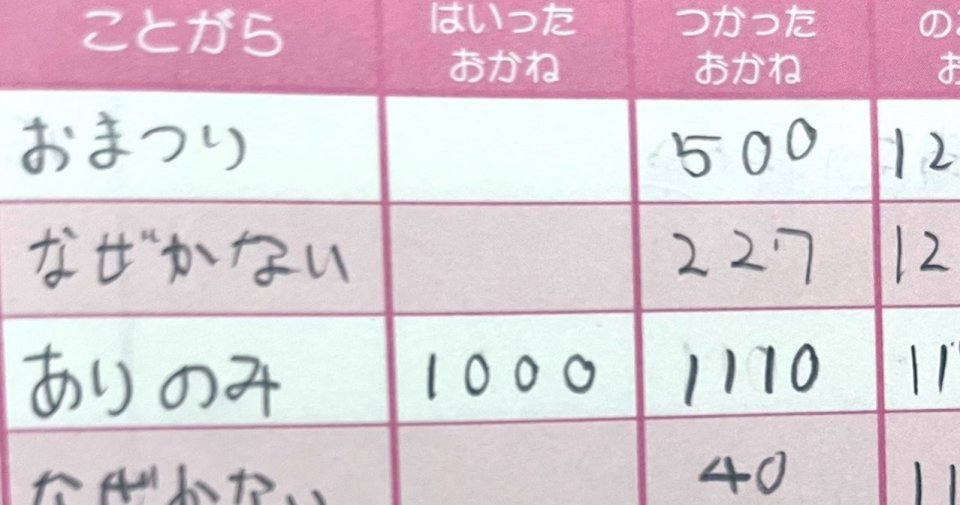 ことがら はいった おかね つかった おかね の お
おまつり 500 12
なぜかない 227 12
ありのみ 1000 1110 11
なぜかない 40 11